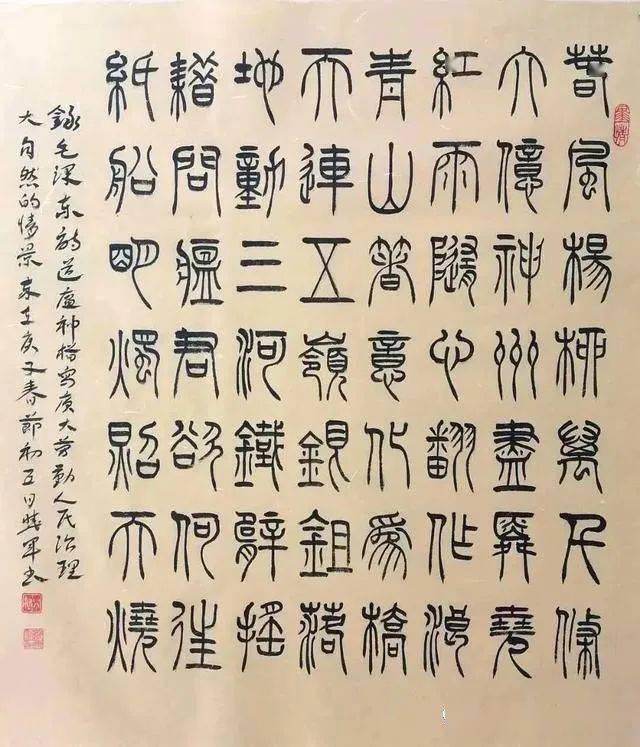 春風楊柳萬千條
六億神州盡舜堯
紅雨隨心翻作浪
青山著意化為橋
天連五嶺銀鉏落
地動三河鐵臂搖
耤問瘟君欲何往
紙船明燭照天燒
錄毛泽东詩送瘟神描写广大劳動人民治理
大自然的情景 庚子春節初五日 軍书